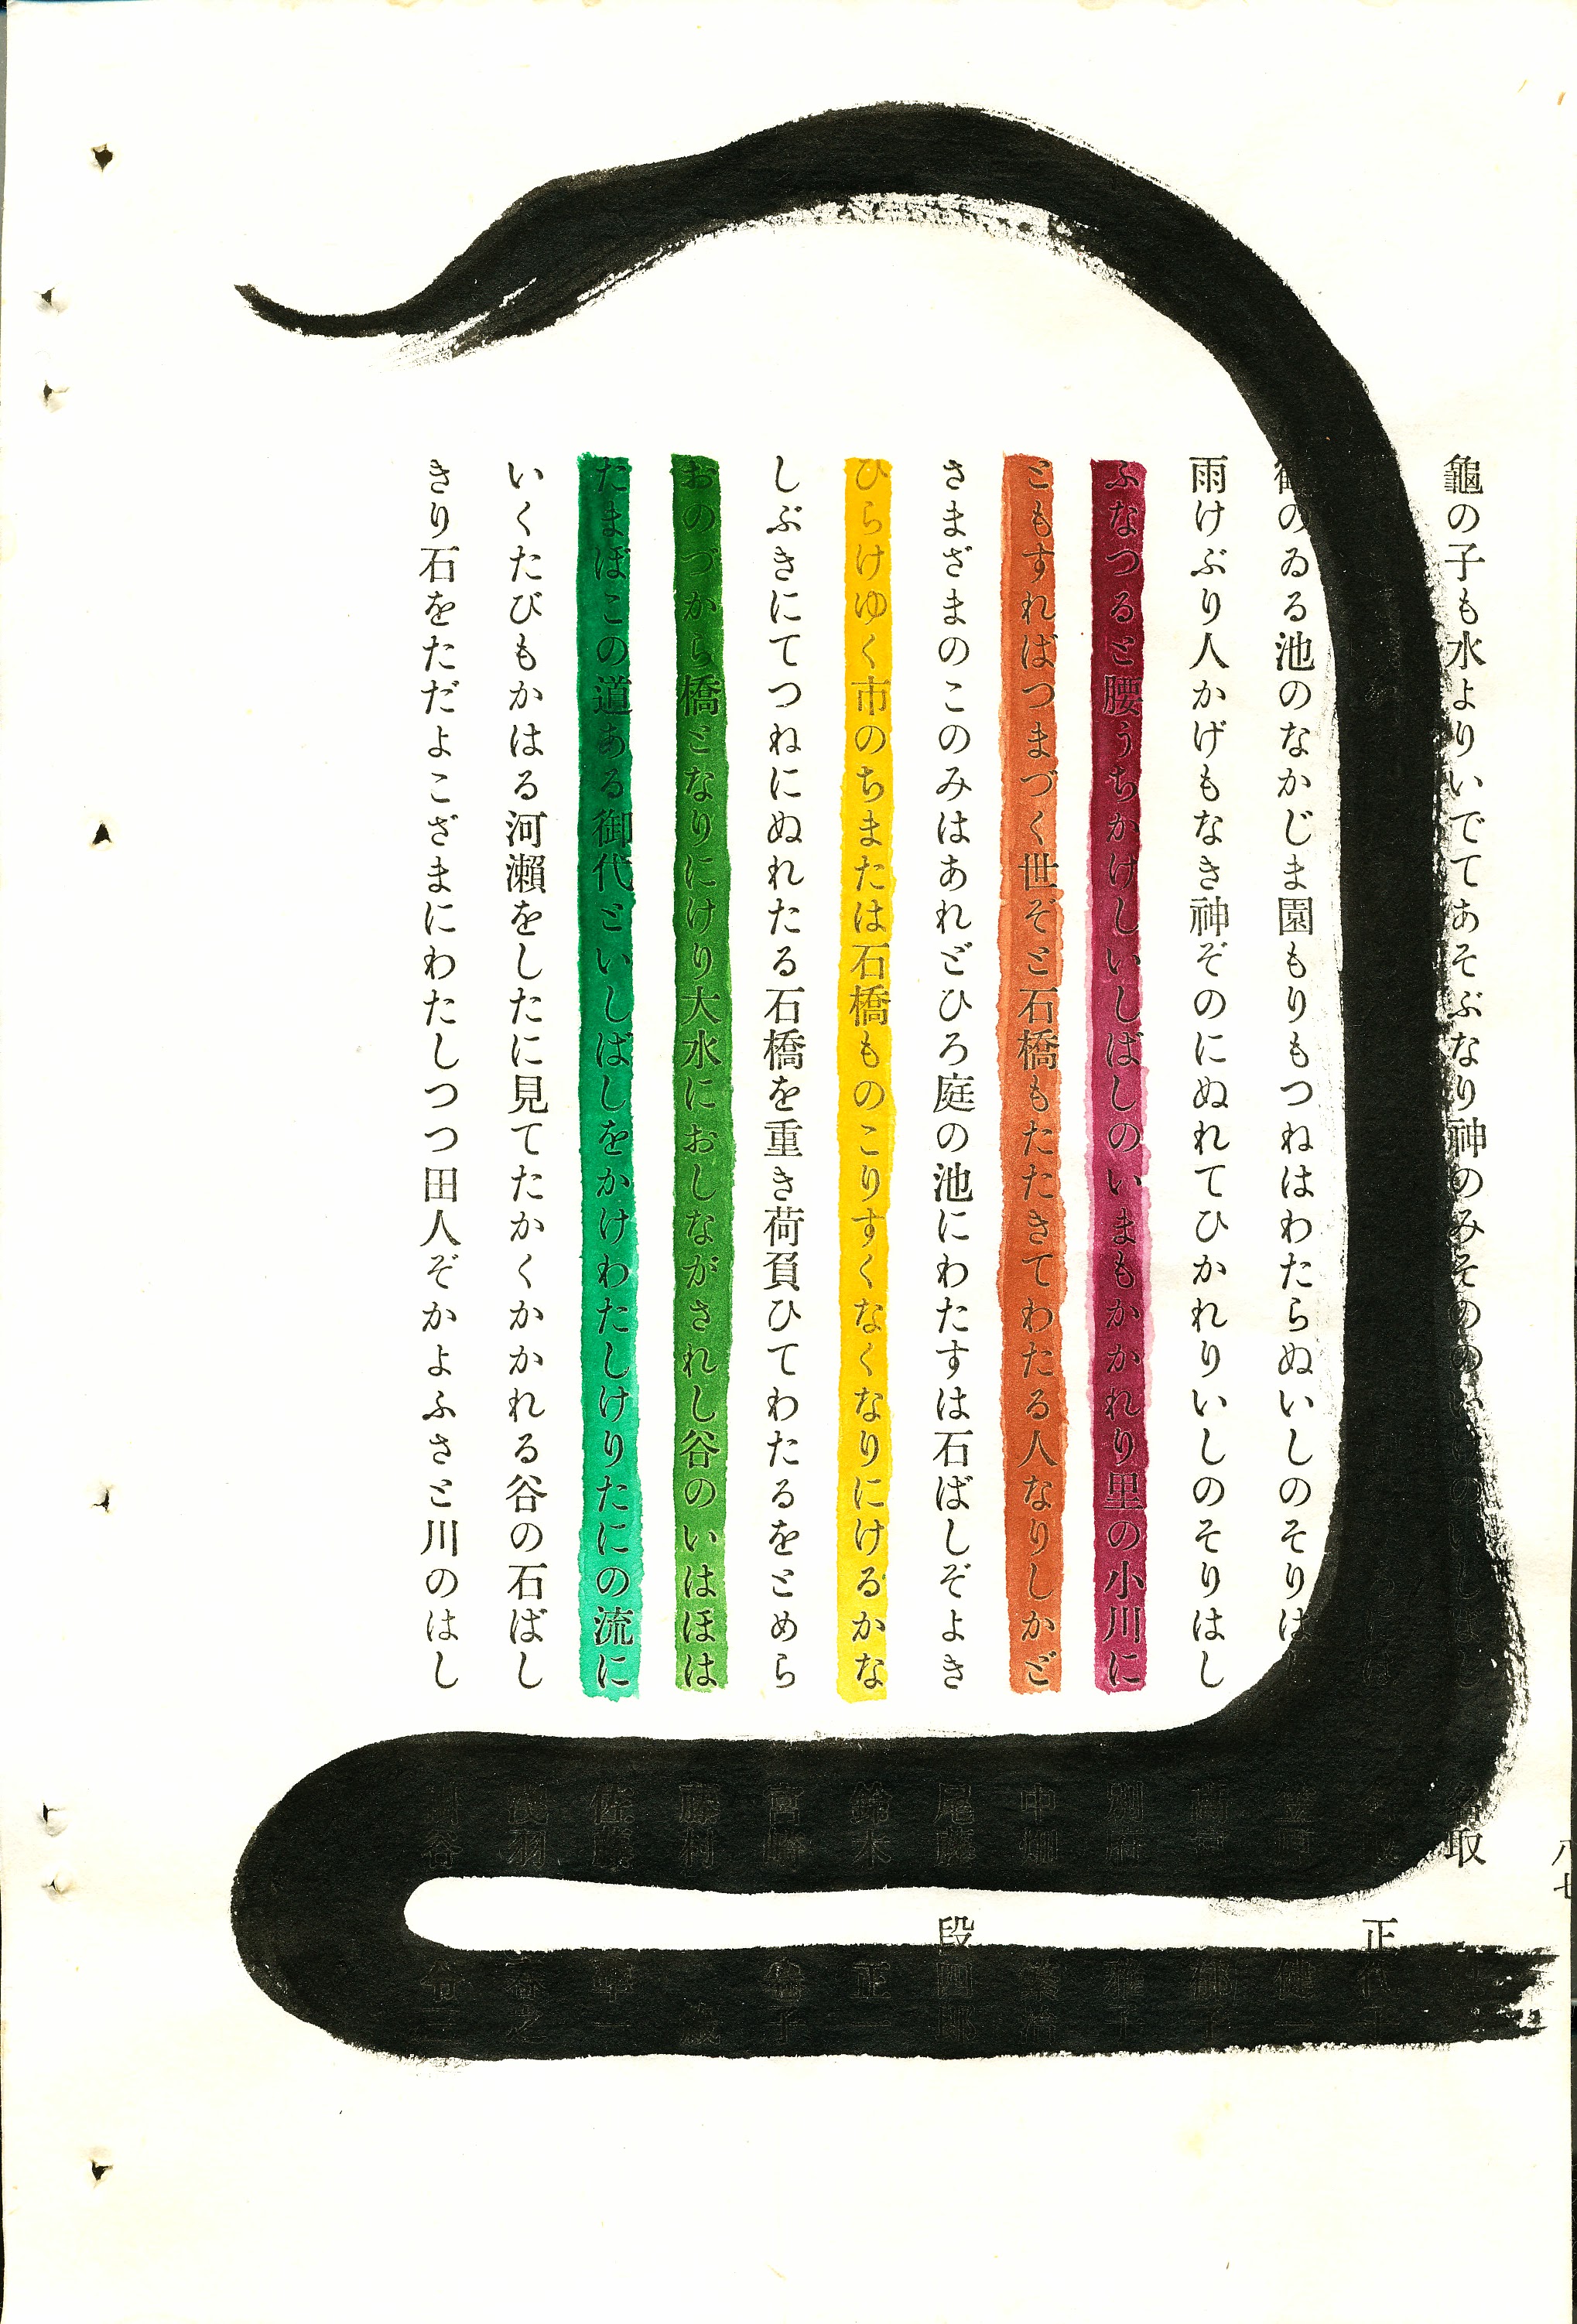 龜の子も水よりいでてあそぶなり神のみその 名取
正代子
鶴のゐる池のなかじま園もりもつねはわたらぬいしのそりは
雨けぶり人かげもなき神ぞのにぬれてひかれりいしのそりはし
ふなつると腰うちかけしいしばしのいまもかかれり里の小川に
ともすればつまづく世ぞと石橋もたたきてわたる人なりしかど 中畑
さまざまのこのみはあれどひろ庭の池にわたすは石ばしぞよき 尾藤 段四郎
ひらけゆく市のちまたは石橋ものこりすくなくなりにけるかな 鈴木 正一
しぶきにてつねにぬれたる石橋を重き荷負ひてわたるをとめら 宮崎
おのづから橋となりにけり大水におしながされし谷のいはほは 藤村
たまぼこの道ある御代といしばしをかけわたしけりたにの流に 佐藤
いくたびもかはる河瀨をしたに見てたかくかかれる谷の石ばし
きり石をただよこざまにわたしつつ田人ぞかよふさと川のはし
八七